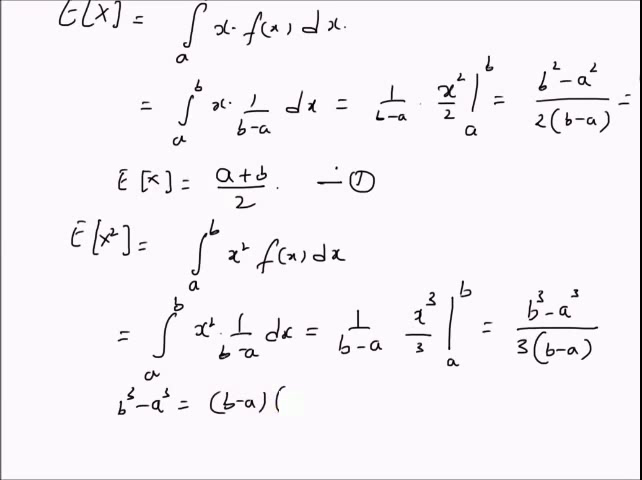 E[X] = ∫_a x· f(x) dx.
= ∫_a^b x· 1/(b-a) dx = 1/(b-a) · x²/2 |_a^b = (b²-a²)/(2(b-a)) =
E[X] = (a+b)/2. — ①
E[X²] = ∫_a^b x² f(x) dx
= ∫_a^b x²· 1/(b-a) dx = 1/(b-a) x³/3 |_a^b = (b³-a³)/(3(b-a))
b³-a³ = (b-a) (